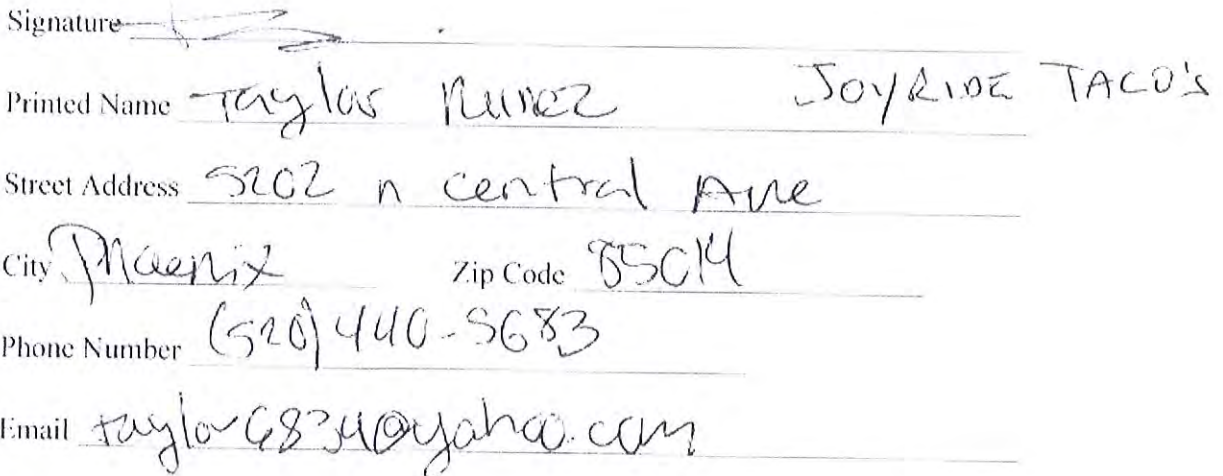 Signature
Printed Name Taylor Nunez JOYRIDE TACO'S
Street Address 5202 n central Ave
City Phoenix Zip Code 85014
Phone Number (520) 440-5683
Email taylor6834@yahoo.com